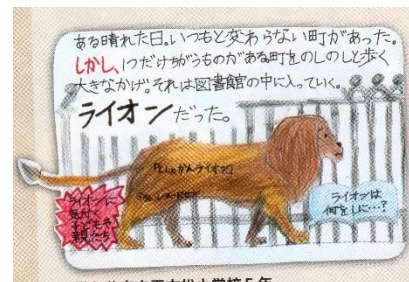 ある晴れた日。いつもと変わらない町があった。
しかし、1つだけちがうものがある町をのしのしと歩く
大きなかげ。それは図書館の中に入っていく。
ライオンだった。
「としょかんライオン」
ライオンに
気付く
子どもや
親たち
ライオンは
何をしに…?